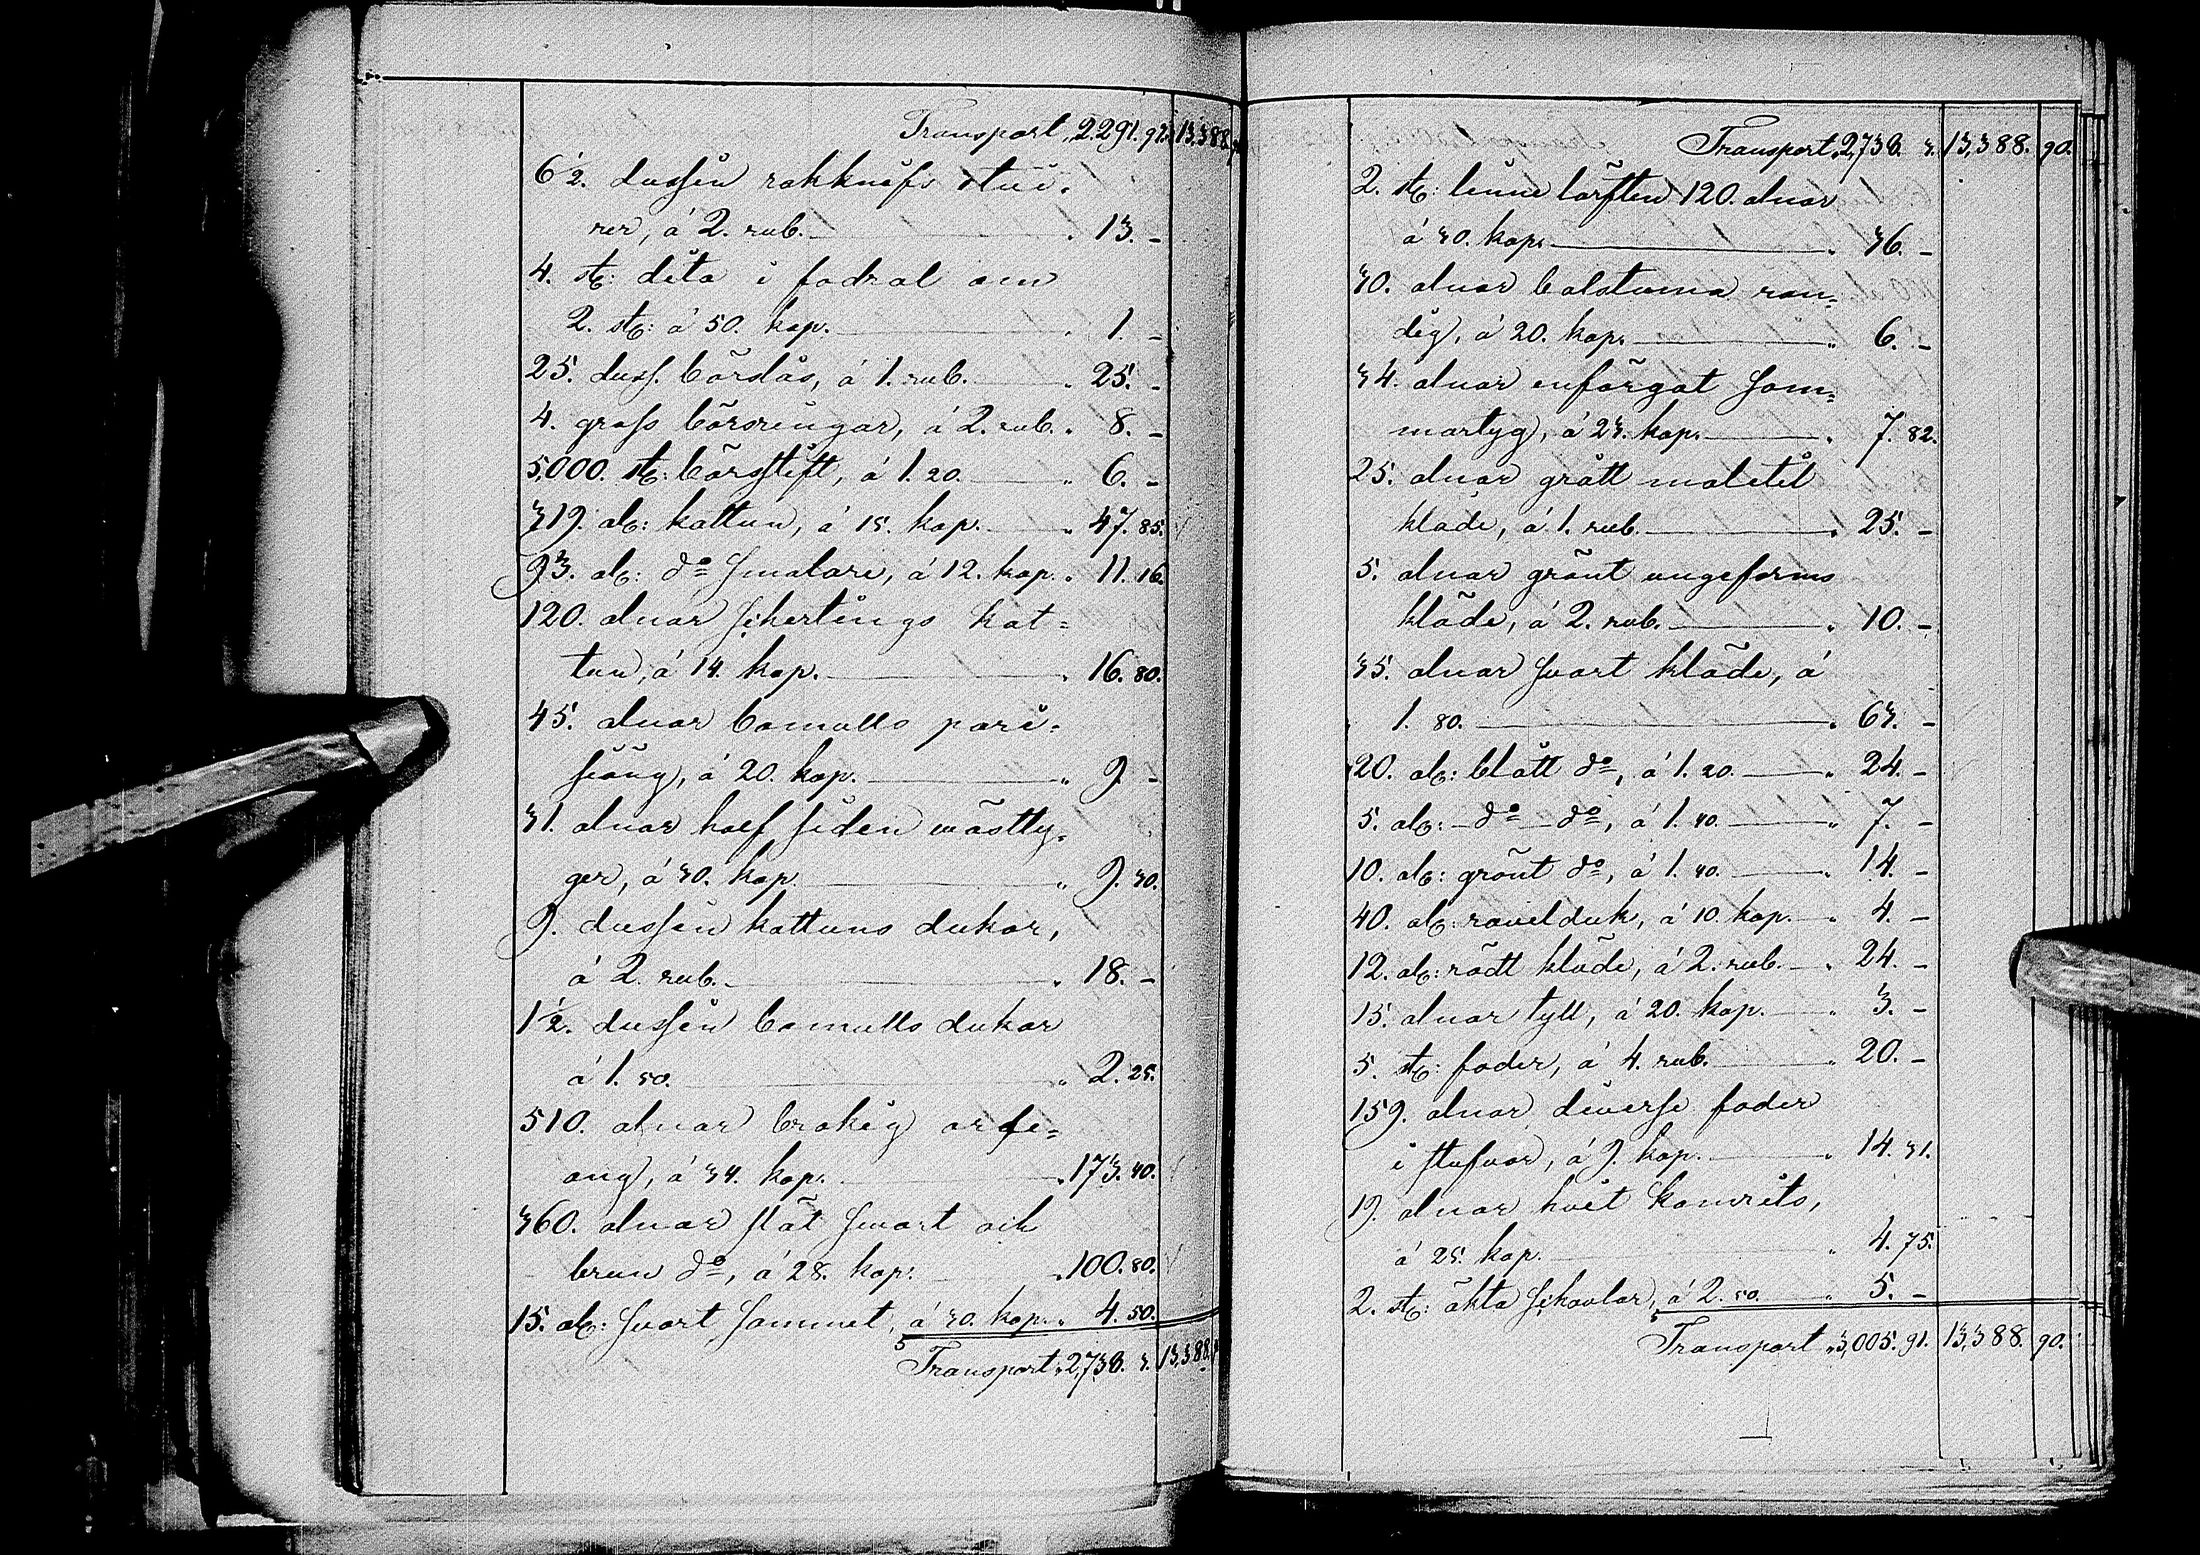 Transport „ 2.291. 97. 13,388.
6½. dussin rakknifs stui-
rer, á 2. rub. „ 13. -
4. st: dito i fodral om
2. st: á 50. kop. „ 1. -
25. duss. börslås, á 1. rub. „ 25. -
4. gross börsringar, á 2. rub. „ 8. -
5,000. st: börsstift, á 1. 20. „ 6. -
319. al: kattun, á 15. kop. „ 47. 85.
93. al: do smalare, á 12. kop. „ 11. 16.
120. alnar sikertings kat=
tun, á 14. kop. „ 16. 80.
45. alnar bomulls pari=
siäng, á 20. kop. „ 9. -
31. alnar half siden wästty=
ger, á 30. kop. „ 9. 30.
9. dussin kattuns dukar,
á 2. rub. „ 18. -
1½. dussin bomulls dukar
á 1. 50. „ 2. 25.
510. alnar brokig orle=
ang, á 34. kop. „ 173. 40.
360. alnar slät svart och
brun do, á 28. kop. „ 100. 80.
15. al: svart sammet, á 30. kop. „ 4. 50.
Transport „ 2,738. 3. 13,388.
Transport „ 2,738. 3. 13,388. 90.
2. st: linne lärften 120. alnar
á 30. kop. „ 36. -
30. alnar bolstuma ran=
dig, á 20. kop. „ 6. -
34. alnar enfärgat som=
martyg, á 23. kop. „ 7. 82.
25. alnar grått
kläde, á 1. rub. „ 25. -
5. alnar grönt ungeforms
kläde, á 2. rub. „ 10. -
35. alnar svart kläde, á
1. 80. „ 63. -
20. al: blått do, á 1. 20. „ 24. -
5. al: do do, á 1. 40. „ 7. -
10. al: grönt do, á 1. 40. „ 14. -
40. al: ravelduk, á 10. kop. „ 4. -
12. al: rödt kläde, á 2. rub. „ 24. -
15. alnar tyll, á 20. kop. „ 3. -
5. st: foder, á 4. rub. „ 20. -
159. alnar diverse foder
i stufvar, á 9. kop. „ 14. 31.
19. alnar hvit kamrits,
á 25. kop. „ 4. 75.
2. st: äkta sjkavlar, á 2. 50. „ 5. -
Transport „ 3,005. 91. 13,388. 90.